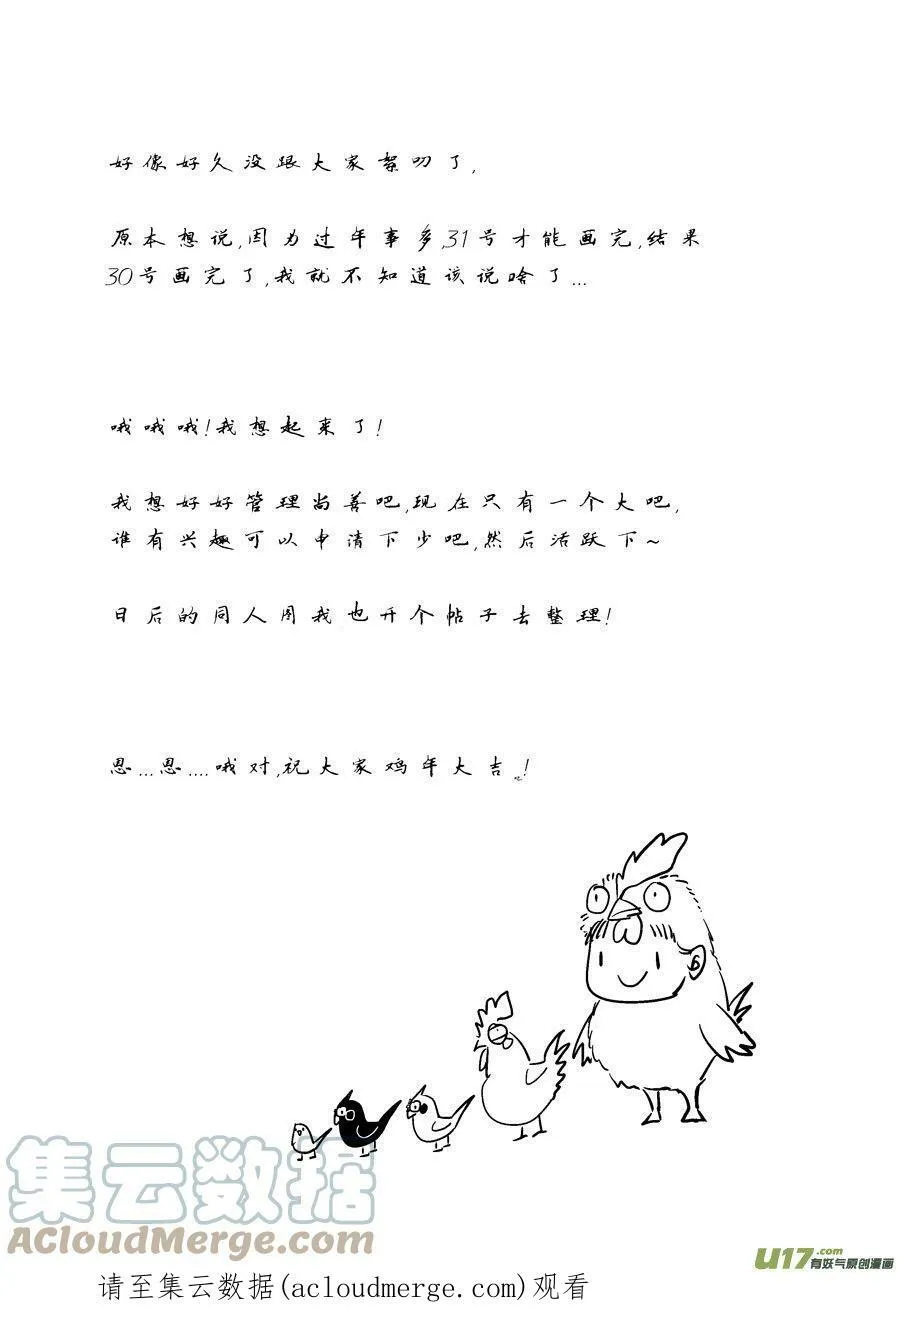 好像好久没跟大家絮叨了,
原本想说,因为过年事多,31号才能画完,结果
30号画完了,我就不知道该说啥了...
哦哦哦!我想起来了!
我想好好管理尚善吧,现在只有一个大吧,
谁有兴趣可以申请下少吧,然后活跃下~
日后的同人图我也开个帖子去整理!
恩...恩....哦对,祝大家鸡年大吉!
集云数据
ACloudMerge.com
U17.com
有妖气原创漫画
请至集云数据(acloudmerge.com)观看